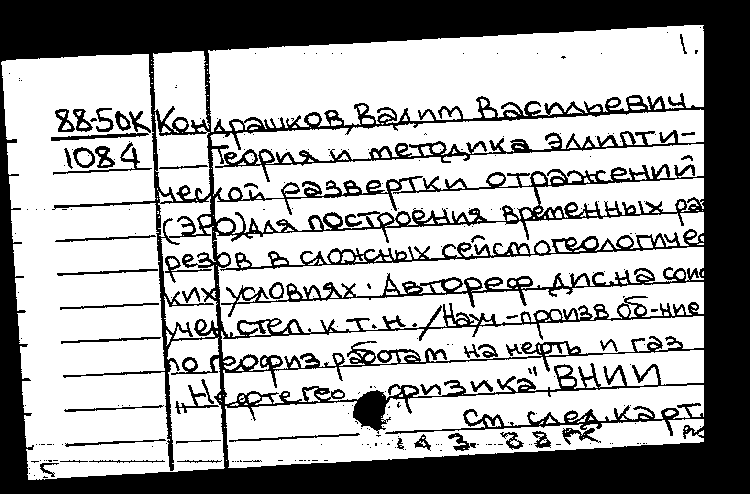 1.
88-5ОК Кондрашков, Вадим Васильевич.
1084 Теория и методика эллипти-
ческой развертки отражений
(ЭРО) для построения временных раз
резов в сложных сейсмогеологичес
ких условиях: Автореф. дис. на соис
учен. степ. к.т.н. / Науч.-произв об-ние
по геофиз. работам на нефть и газ
„Нефтегеофизика", ВНИИ
См. след. карт.